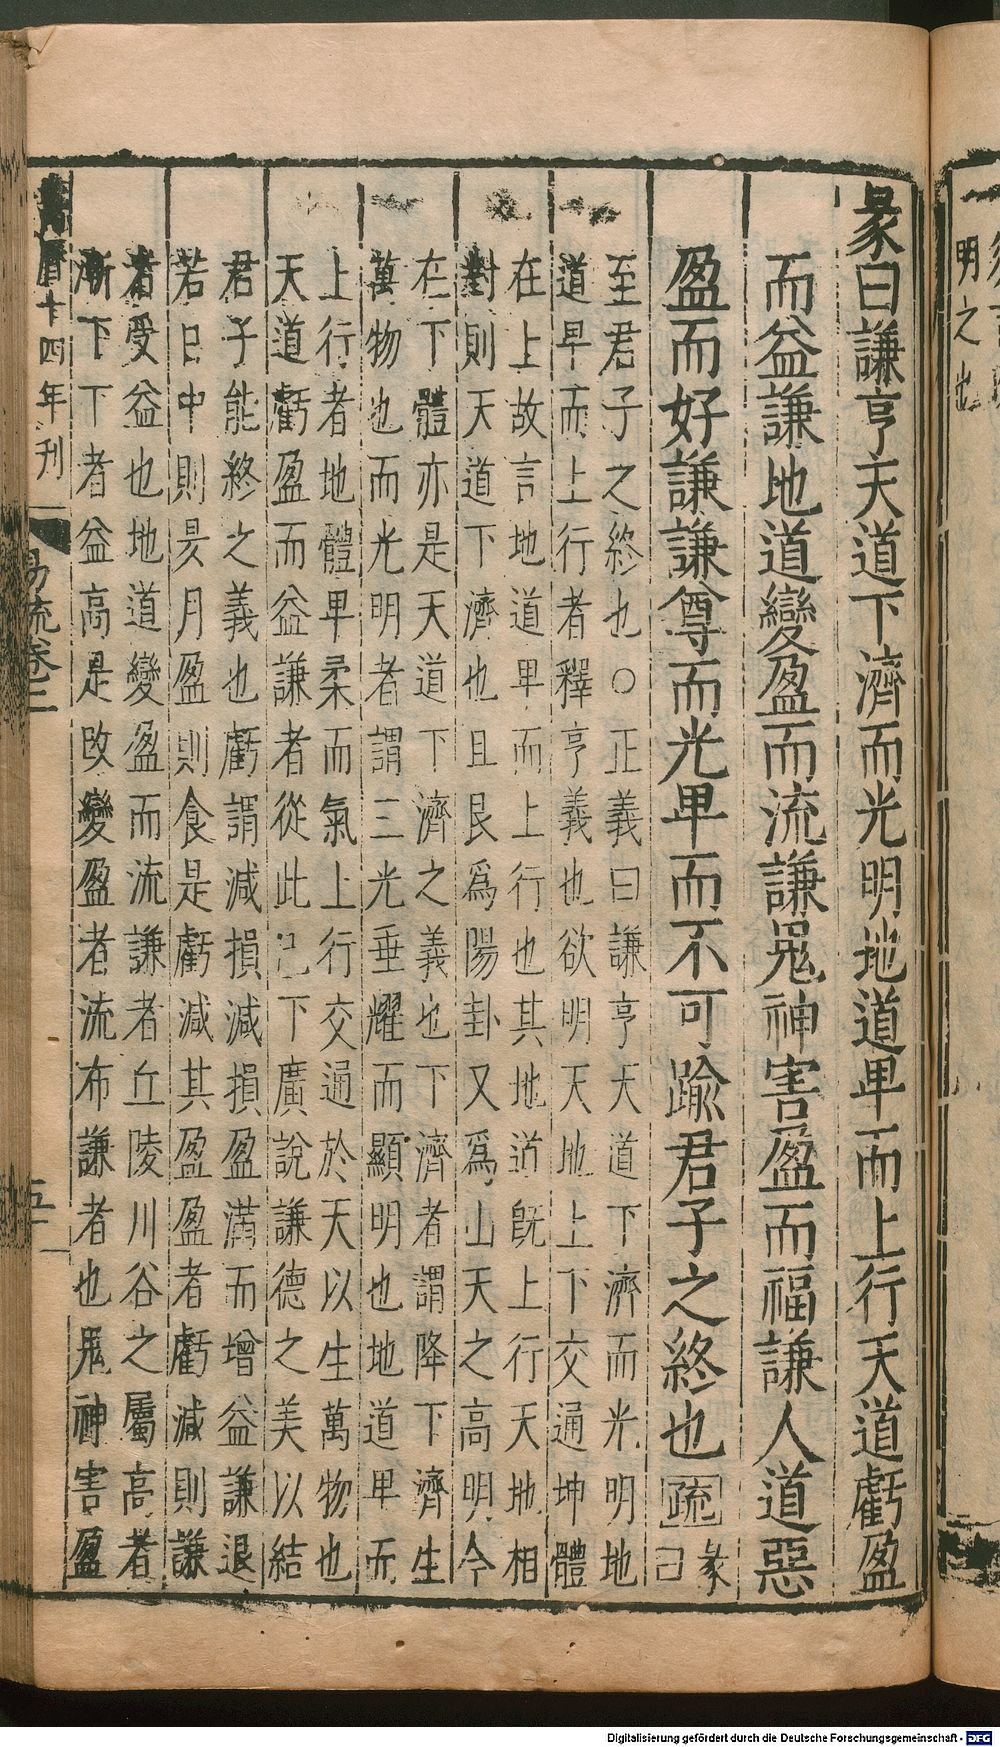 明之也
彖曰謙亨天道下濟而光明地道卑而上行天道虧盈
而益謙地道變盈而流謙鬼神害盈而福謙人道惡
盈而好謙謙尊而光卑而不可踰君子之終也疏彖曰
至君子之終也○正義曰謙亨天道下濟而光明地
道卑而上行者釋亨義也欲明天地上下交通坤體
在上故言地道卑而上行也其地道既上行天地相
對則天道下濟也且艮爲陽卦又爲山天之高明今
在下體亦是天道下濟之義也下濟者謂降下濟生
萬物也而光明者謂三光垂耀而顯明也地道卑而
上行者地體卑柔而氣上行交通於天以生萬物也
天道虧盈而益謙者從此已下廣說謙德之美以結
君子能終之義也虧謂減損減損盈滿而增益謙退
若日中則昃月盈則食是虧減其盈盈者虧減則謙
者受益也地道變盈而流謙者丘陵川谷之屬高者
漸下下者益高是改變盈者流布謙者也鬼神害盈
萬曆十四年刊
易疏卷二
五
Digitalisierung gefördert durch die Deutsche Forschungsgemeinschaft - DFG